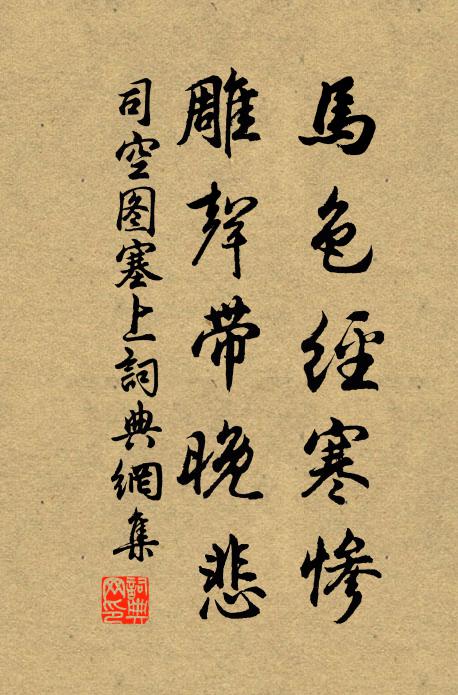 馬色經寒慘
雕聲帶晚悲
司空图塞上詞典網集
詞典网印